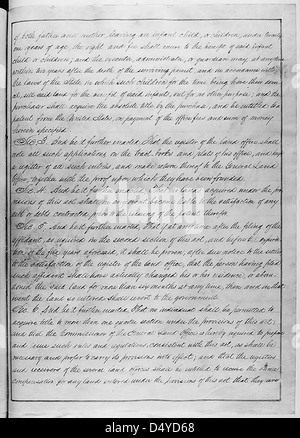 of both father and mother, leaving an infant child, or children, under twenty
one years of age, the right and fee shall enure to the benefit of said infant
child or children; and the executor, administrator, or guardian may, at any time
within two years after the death of the surviving parent, and in accordance with
the laws of the State in which such children for the time being have their domi-
cil, sell said land for the benefit of said infants, but for no other purpose; and the
purchaser shall acquire the absolute title by the purchase, and be entitled to a
patent from the United States, on payment of the office fees and sum of money
herein specified.
Sec. 3. And be it further enacted, That the register of the land office shall
note all such applications on the tract books and plats of his office, and keep
a register of all such entries, and make return thereof to the General Land
Office, together with the proof upon which they have been founded.
Sec. 4. And be it further enacted, That no lands acquired under the pro-
visions of this act shall in any event become liable to the satisfaction of any
debt or debts contracted prior to the issuing of the patent therefor.
Sec. 5. And be it further enacted, That if, at any time after the filing of the
affidavit, as required in the second section of this act, and before the expira-
tion of the five years aforesaid, it shall be proven, after due notice to the settler,
to the satisfaction of the register of the land office, that the person having filed
such affidavit shall have actually changed his or her residence, or aban-
doned the said land for more than six months at any time, then and in that
event the land so entered shall revert to the government.
Sec. 6. And be it further enacted, That no individual shall be permitted to
acquire title to more than one quarter section under the provisions of this act;
and that the Commissioner of the General Land Office is hereby required to prepare
and issue such rules and regulations, consistent with this act, as shall be
necessary and proper to carry its provisions into effect; and that the registers
and receivers of the several land offices shall be entitled to receive the same
compensation for any lands entered under the provisions of this act that they are now
alamy
Image ID: D4YD68
www.alamy.com